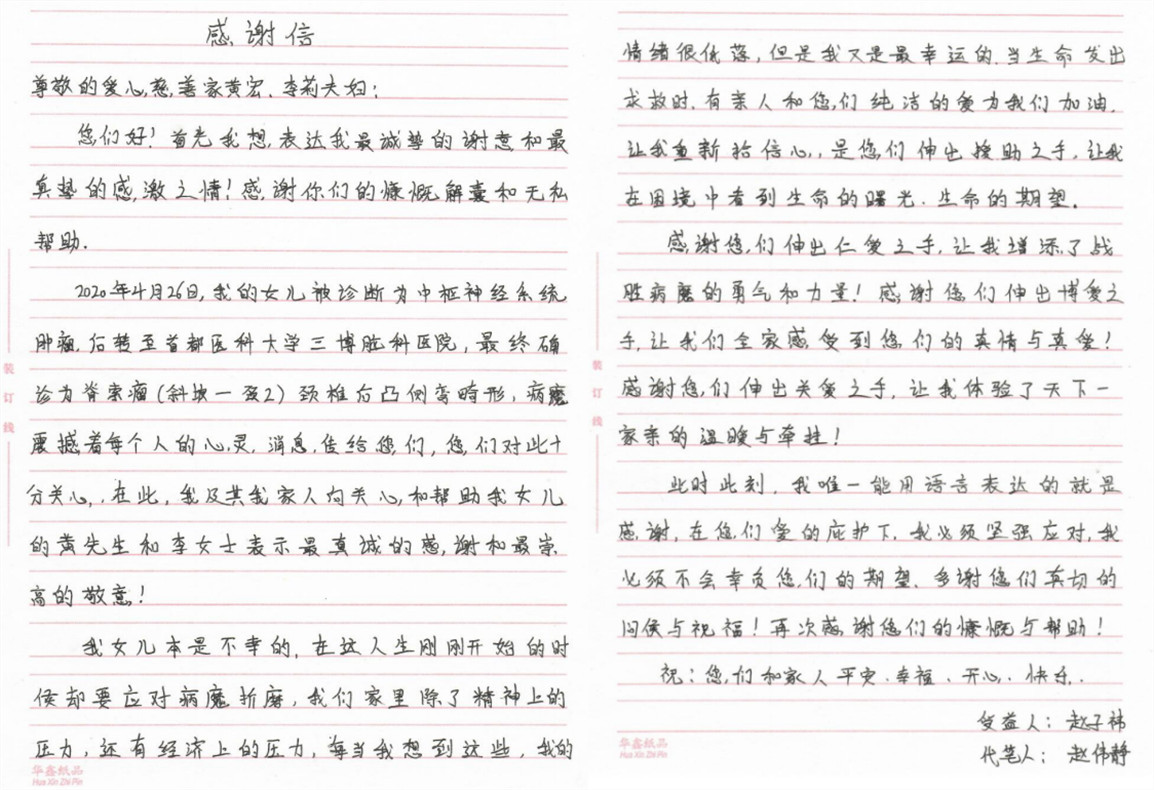 感谢信
尊敬的爱心慈善家黄宏、李莉夫妇：
您们好！首先我想表达我最诚挚的谢意和最
真挚的感激之情！感谢你们的慷慨解囊和无私
帮助.
2020年4月26日,我的女儿被诊断为中枢神经系统
肿瘤.后转至首都医科大学三博脑科医院，最终确
诊为脊索瘤(斜坡一颈2)颈椎后凸侧弯畸形，病魔
震撼着每个人的心灵.消息传给您们，您们对此十
分关心，在此，我及其我家人向关心和帮助我女儿
的黄先生和李女士表示最真诚的感谢和最崇
高的敬意！
我女儿本是不幸的，在这人生刚刚开始的时
侯却要应对病魔折磨，我们家里除了精神上的
压力，还有经济上的压力，每当我想到这些，我的
华鑫纸品
Hua Xin Zhi Pin
装
订
线
情绪很低落，但是我又是最幸运的.当生命发出
求救时.有亲人和您们纯洁的爱为我们加油.
让我重新拾信心，是您们伸出援助之手，让我
在困境中看到生命的曙光.生命的期望。
感谢您们伸出仁爱之手，让我增添了战
胜病魔的勇气和力量！感谢您们伸出博爱之
手,让我们全家感受到您们的真情与真爱！
感谢您们伸出关爱之手，让我体验了天下一
家亲的温暖与牵挂！
此时此刻，我唯一能用语言表达的就是
感谢，在您们爱的庇护下.我必须坚强应对,我
必须不会幸负您们的期望、多谢您们真切的
问侯与祝福！再次感谢您们的慷慨与帮助！
祝：您们和家人平安.幸福.开心.快乐.
受益人：赵子祎
代笔人：赵伟静
华鑫纸品
Hua Xin Zhi Pin
装
订
线